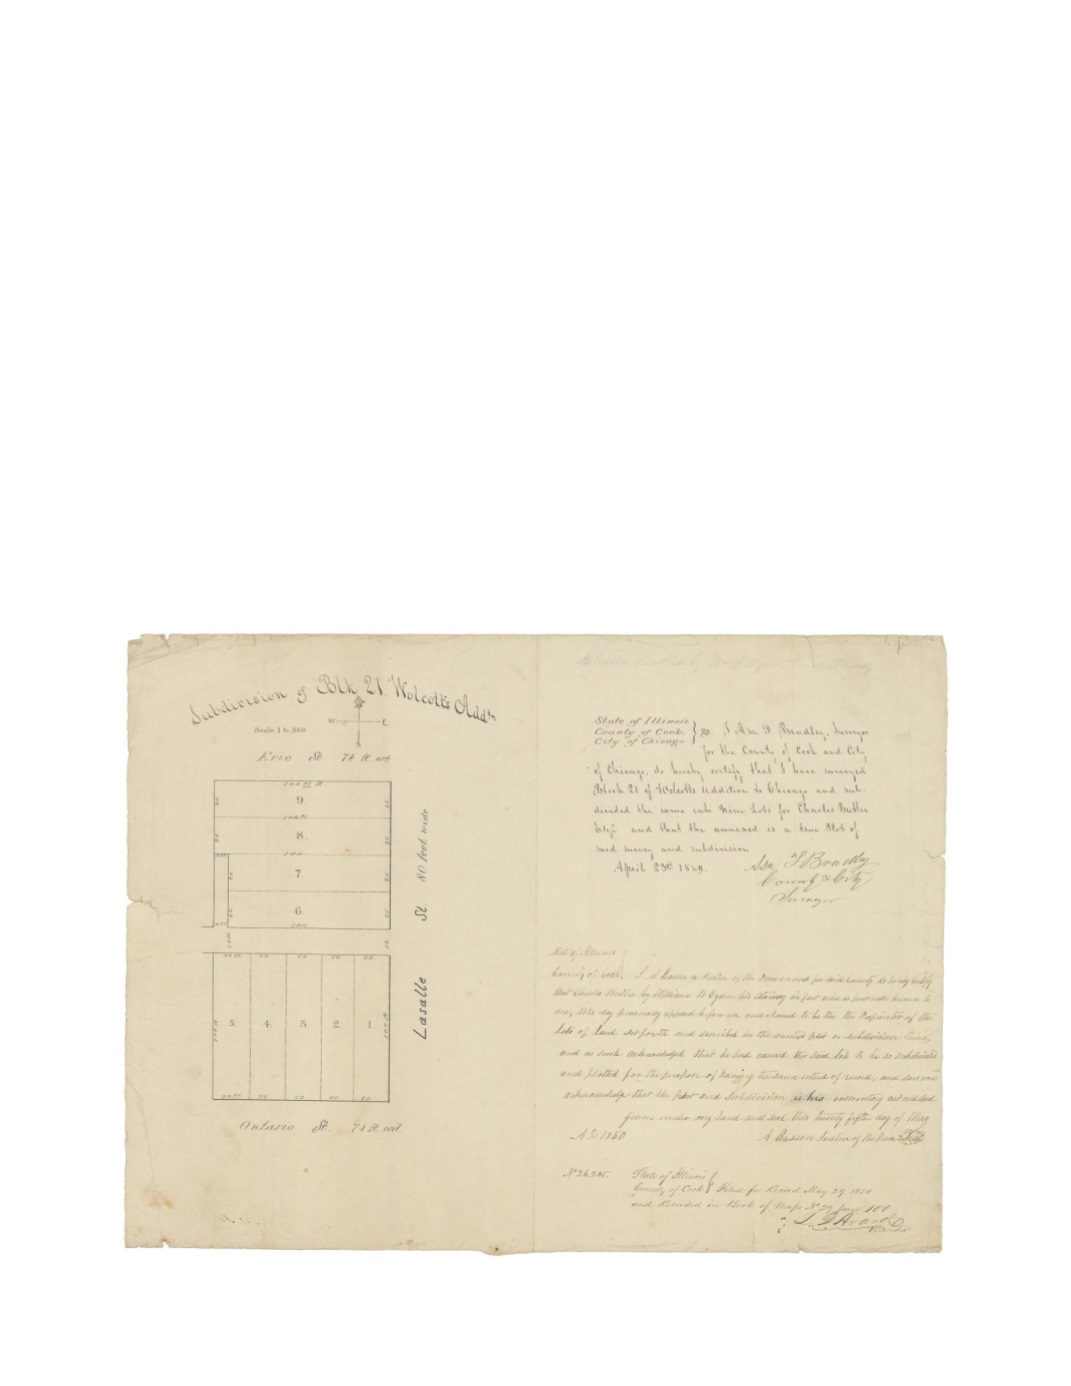 Subdivision of Blk 21 Wolcott's Addn
W E
Scale 1 to 360
Erie St. 74 ft
9.
100 ft
8.
100
7
6.
100
100
80 feet wide
St
Lasalle
5. 4. 3. 2 1.
Ontario St. 74 ft
State of Illinois
County of Cook
City of Chicago } ss. I Asa F. Bradley, Surveyor
for the County of Cook and City
of Chicago, do hereby certify that I have surveyed
Block 21 of Wolcotts Addition to Chicago and sub-
divided the same into Nine Lots for Charles Butler
Esqr and that the annexed is a true Plot of
said survey and subdivision.
April 23d 1849. Asa F Bradley
County & City
Surveyor
State of Illinois
County of Cook. I a Justice of the Peace in and for said County do hereby certify
that Charles Butler by William B Ogden his attorney in fact who is personally known to
me, this day personally appeared before me and claimed to be the Proprietor of the
Lots of land set forth and described in the annexed plot or subdivision
and as such acknowledged that he had caused the said lots to be so subdivided
and platted for the purpose of having the same of record, and does now
acknowledge that the Plot and Subdivision is his voluntary act and deed
given under my hand and seal this twenty fifth day of May
A.D. 1850 Justice of the Peace Seal
No 26.205. State of Illinois
County of Cook } Filed for Record May 29. 1850
and Recorded in Book of Maps No page 100